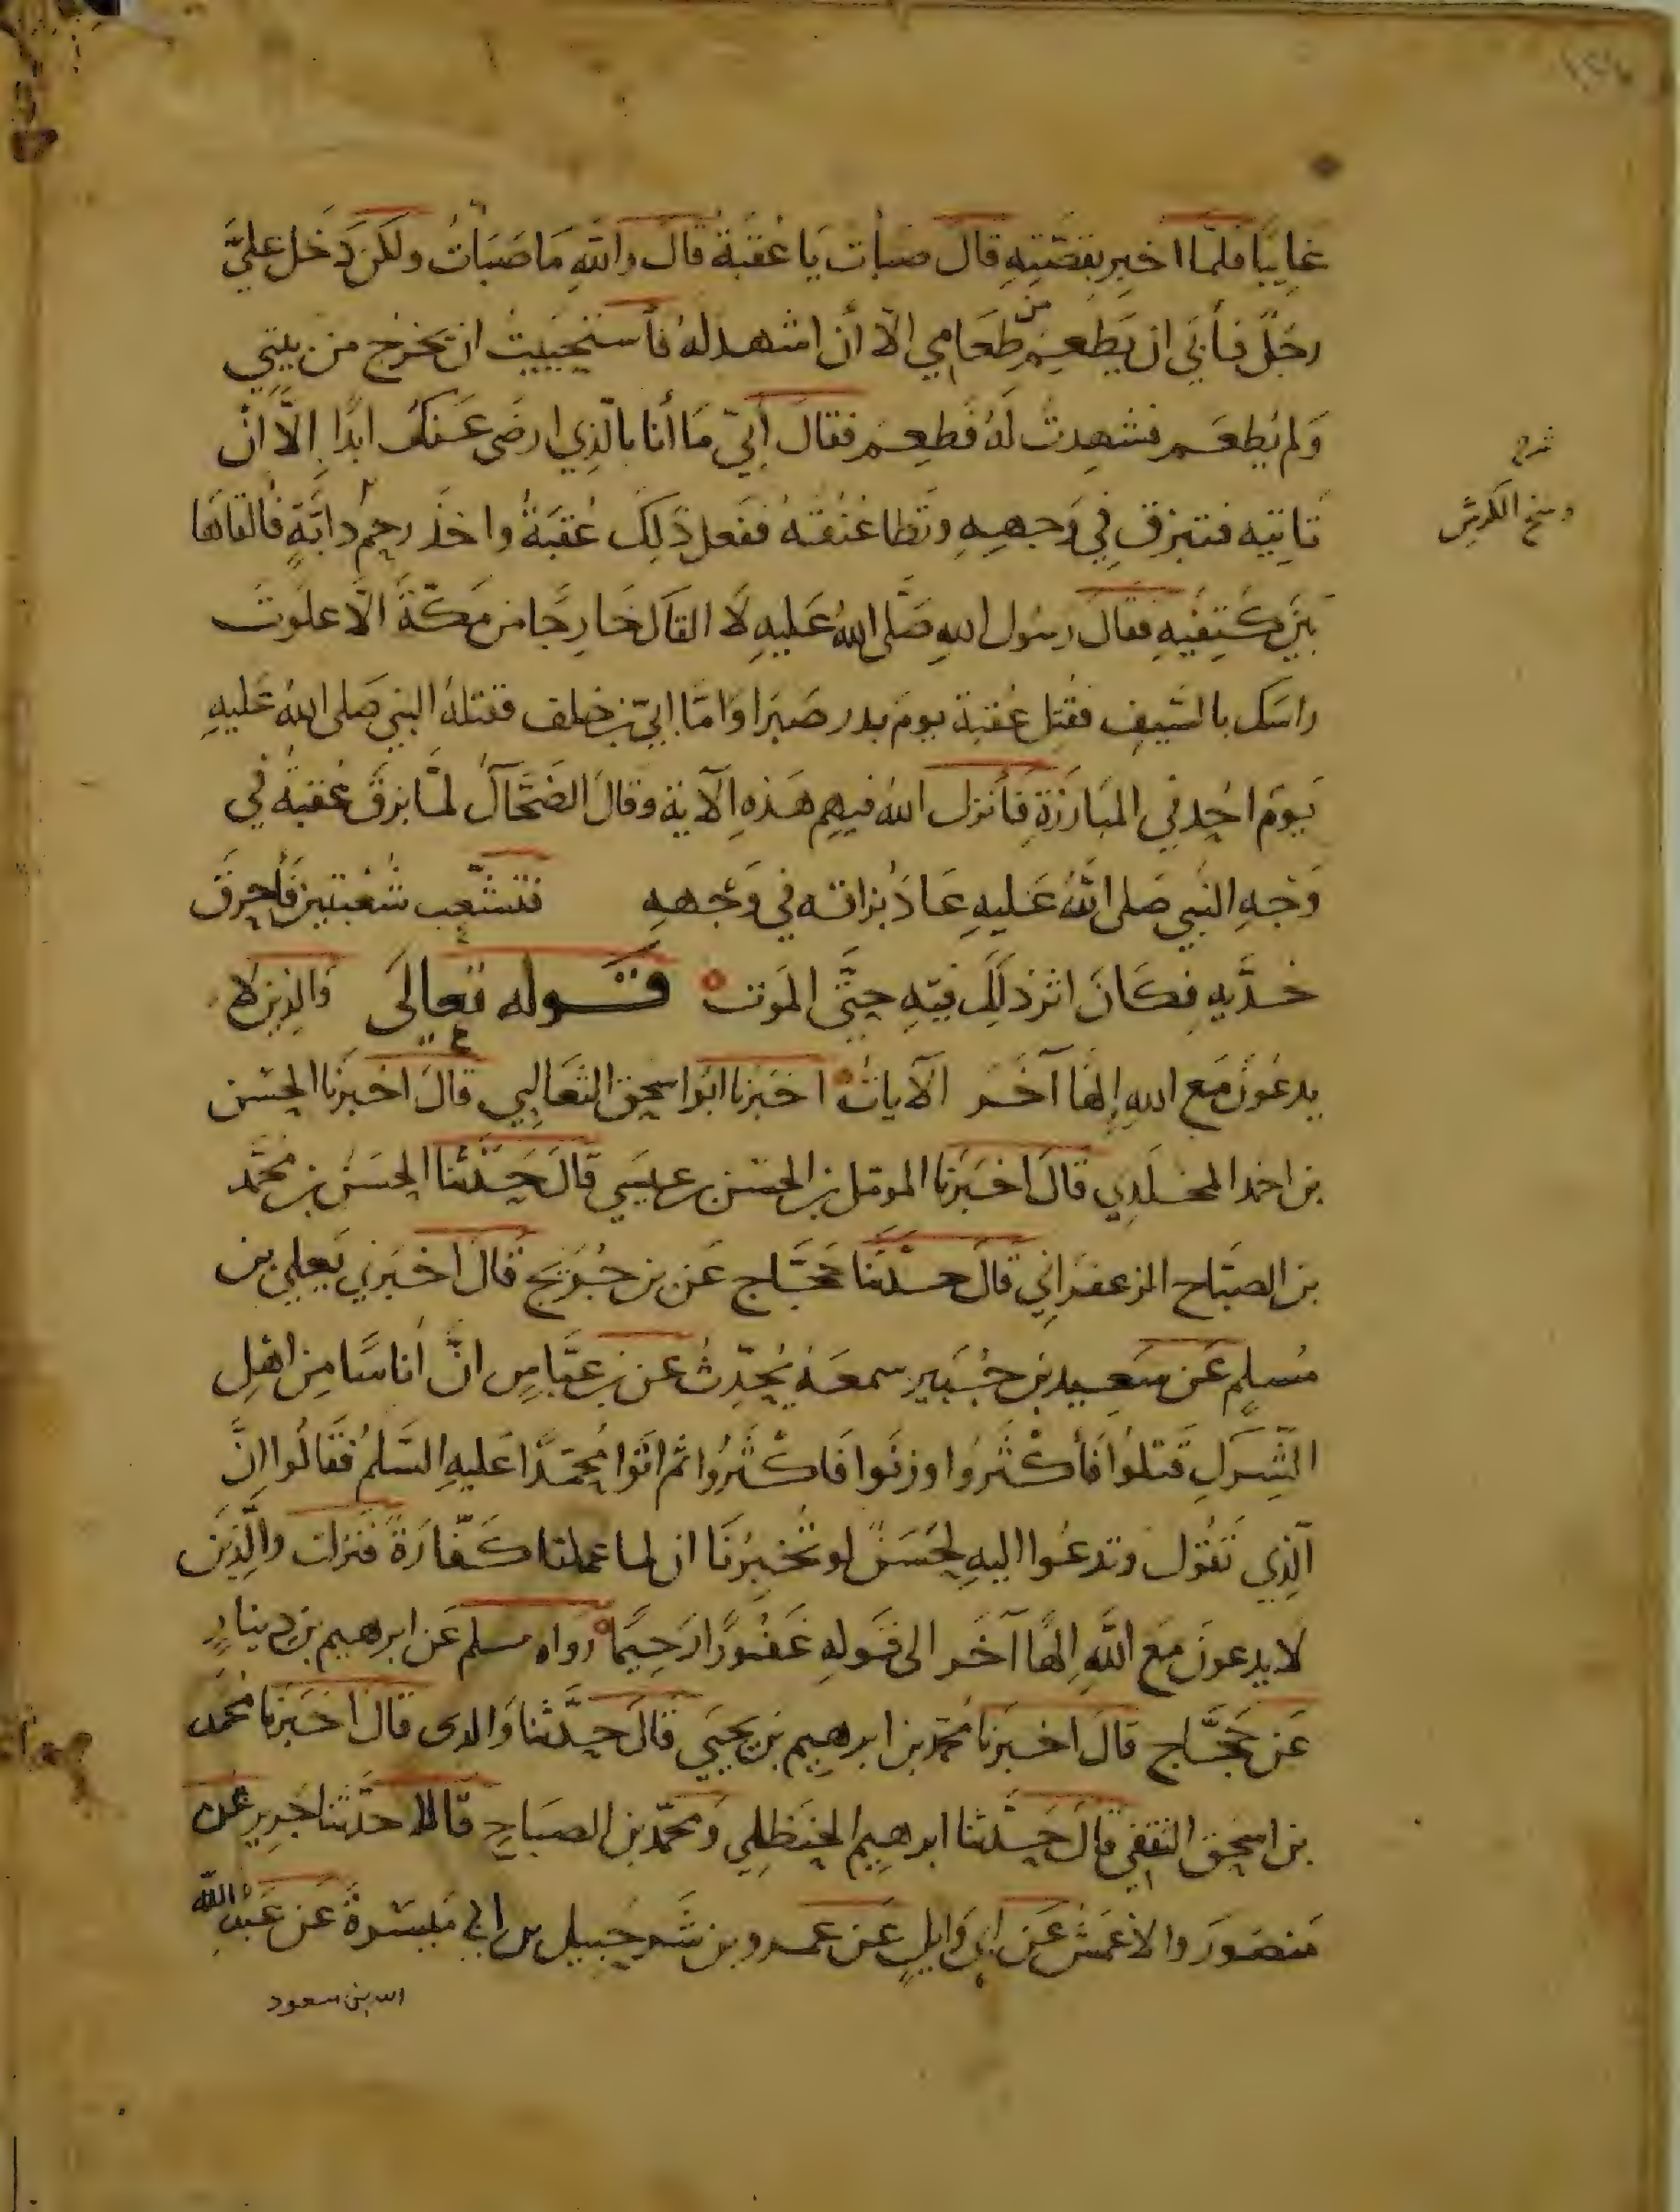 غايبا فلما اخبر بقصته قال صبأت يا عقبة قال والله ما صبأت ولكن دخل علي
رجل فأبي ان يطعم من طعامي الا أن اشهد له فأستحييت ان يخرج من بيتي
ولم يطعم فشهدت له فطعم فقال أبي ما أنا بالذي ارضى عنك ابدا إلا ان
تاتيه فتبزق في وجهه وتطا عنقه ففعل ذلك عقبة واخذ رحم دابة فالقاها
بين كتفيه فقال رسول الله صلى الله عليه لا القاك خارجا من مكة الا علوت
راسك بالسيف فقتل عقبة يوم بدر صبرا واما ابي بن خلف فقتله النبي صلى الله عليه
يوم احد في المبارزة فأنزل الله فيهم هذه الآية وقال الضحاك لما بزق عقبة في
وجه النبي صلى الله عليه عاد بزاقه في وجهه فتشعب شعبتين فأحرق
خديه فكان اثر ذلك فيه حتى الموت قوله تعالى والذين لا
يدعون مع الله إلها آخر الآيات اخبرنا ابو اسحق الثعالبي قال اخبرنا الحسن
بن احمد المخلدي قال اخبرنا الموتمل بن الحسن بن عيسي قال حدثنا الحسن بن محمد
بن الصباح الزعفراني قال حدثنا حجاج عن بن جريج قال اخبرني يعلي بن
مسلم عن سعيد بن جبير سمعه يحدث عن بن عباس ان أناسا من اهل
الشرك قتلوا فأكثروا وزنوا فاكثروا ثم اتوا محمدا عليه السلم فقالوا ان
الذي تقول وتدعوا اليه لحسن لو تخبرنا ان لما عملنا كفارة فنزلت والذين
لا يدعون مع الله إلها آخر الى قوله غفورا رحيما رواه مسلم عن ابرهيم بن دينار
عن حجاج قال اخبرنا محمد بن ابرهيم بن يحيي قال حدثنا والدى قال اخبرنا محمد
بن اسحق الثقفي قال حدثنا ابرهيم الحنظلي ومحمد بن الصباح قالا حدثنا جرير عن
منصور والاعمش عن ابي وايل عن عمرو بن شرحبيل بن ابي ميسرة عن عبد الله
الله بن سعود
شرح
وسخ الكرش